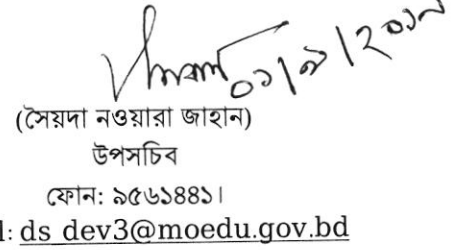 ০১/৯/২০১৯
(সৈয়দা নওয়ারা জাহান)
উপসচিব
ফোন: ৯৫৬১৪৪১।
l: ds_dev3@moedu.gov.bd